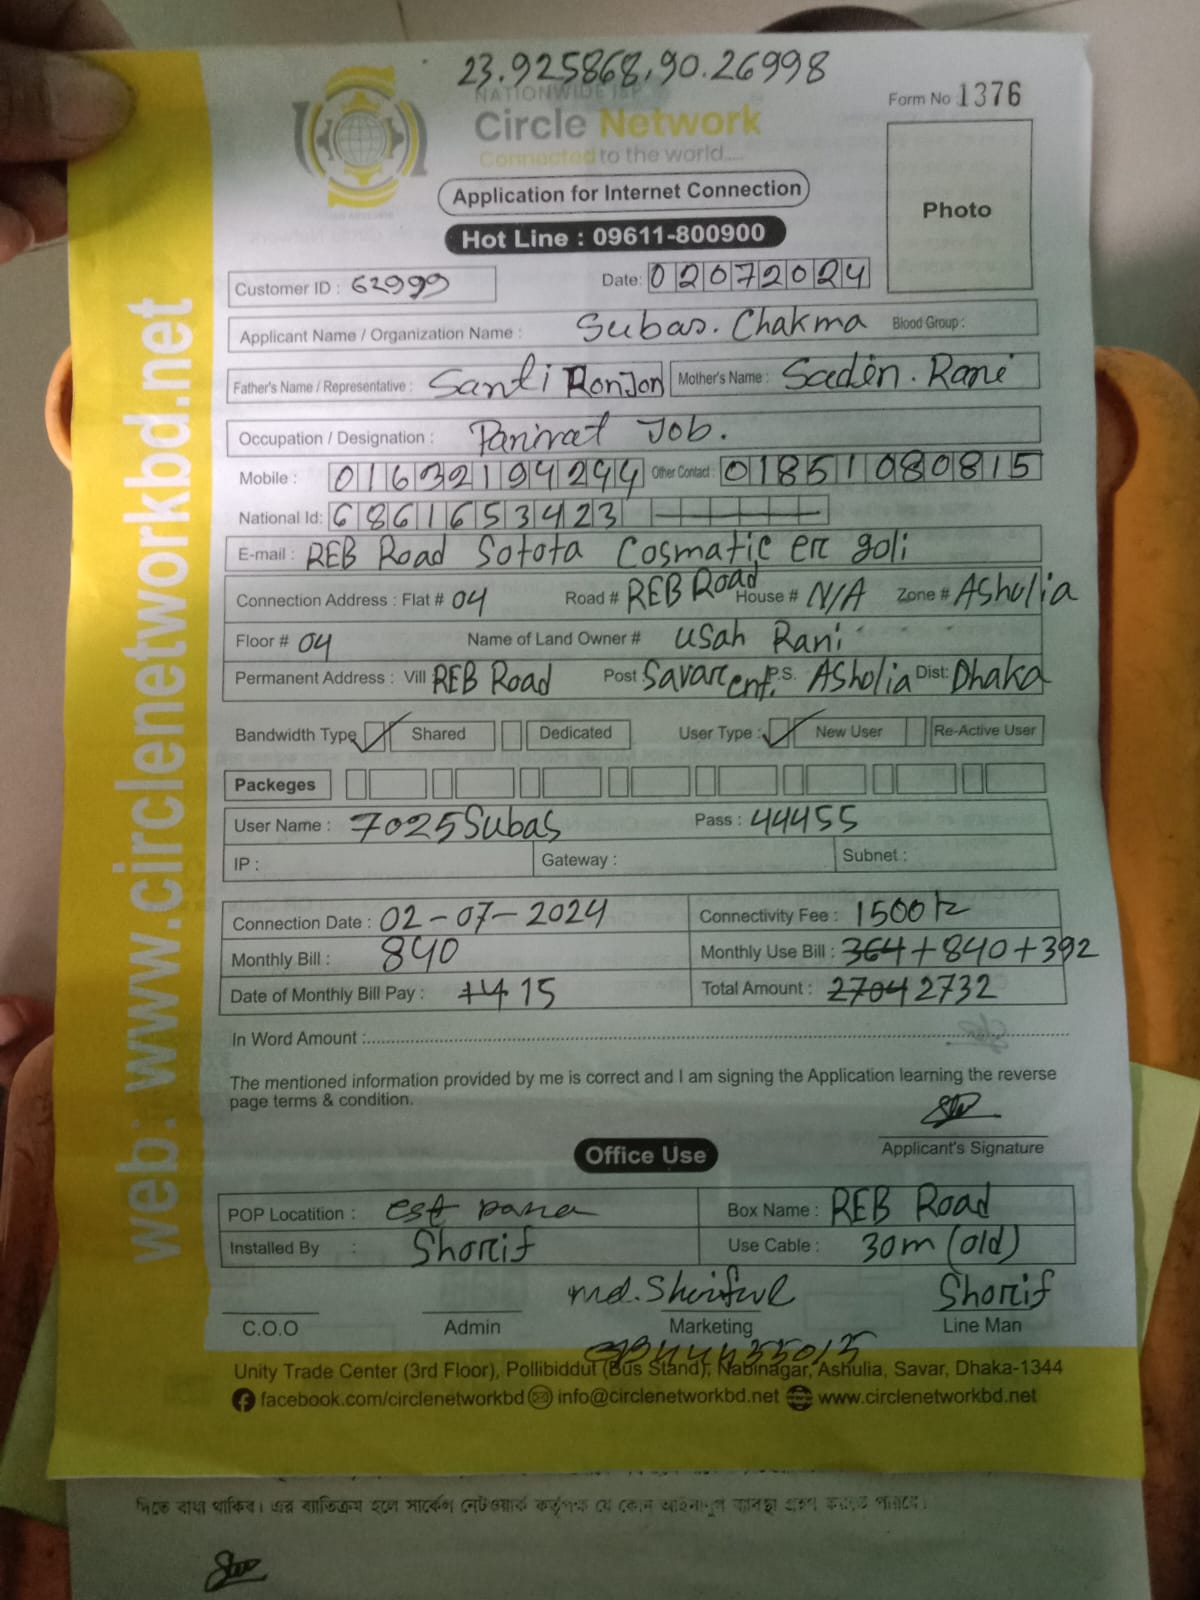 23.925868,90.26998
NATIONWIDE ISP
Circle Network
Connected to the world....
Form No 1376
Photo
Application for Internet Connection
Hot Line : 09611-800900
Customer ID : 62999
Date: 02072024
Applicant Name / Organization Name : Subas. Chakma Blood Group :
Father's Name / Representative : Santi Ronjon Mother's Name : Sadin. Rani
Occupation / Designation : Parivat Job.
Mobile : 01632194294 Other Contact : 01851080815
National Id: 6861653423
E-mail : REB Road Sotota Cosmatic er goli
Connection Address : Flat # 04 Road # REB Road House # N/A Zone # Asholia
Floor # 04 Name of Land Owner # Usah Rani
Permanent Address : Vill REB Road Post Savar cent. P.S. Asholia Dist: Dhaka
Bandwidth Type Shared Dedicated User Type : New User Re-Active User
Packeges
User Name : 7025Subas Pass : 44455
IP : Gateway : Subnet :
Connection Date : 02-07-2024 Connectivity Fee : 1500
Monthly Bill : 840 Monthly Use Bill : 364+840+392
Date of Monthly Bill Pay : 15 Total Amount : 2704 2732
In Word Amount :
The mentioned information provided by me is correct and I am signing the Application learning the reverse
page terms & condition.
Applicant's Signature
Office Use
POP Locatition : Box Name : REB Road
Installed By : Shorif Use Cable : 30m (old)
md. Shoriful Shorif
C.O.O Admin Marketing Line Man
Unity Trade Center (3rd Floor), Pollibiddut (Bus Stand), Nabinagar, Ashulia, Savar, Dhaka-1344
facebook.com/circlenetworkbd info@circlenetworkbd.net www.circlenetworkbd.net
web: www.circlenetworkbd.net
দিতে বাধা থাকিব। এর ব্যতিক্রম হলে সার্কেল নেটওয়ার্ক কর্তৃপক্ষ যে কোন আইনানুগ ব্যবস্থা গ্রহণ করতে পারবে।